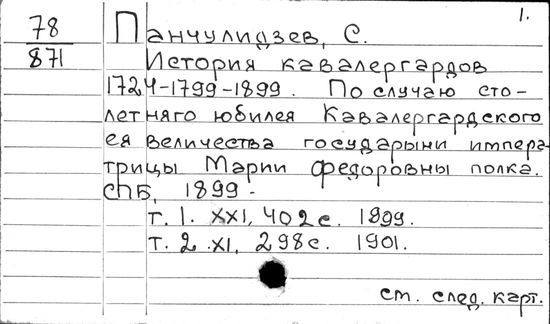 1.
78 Панчулидзев, С.
871 История кавалергардов
1724-1799-1899. По случаю сто-
летняго юбилея Кавалергардского
ея величества государыни импера-
трицы Марии Федоровны полка.
СПБ, 1899-
т. 1. XXI, 402с. 1899.
т. 2 XI, 298с. 1901.
см. след. карт.